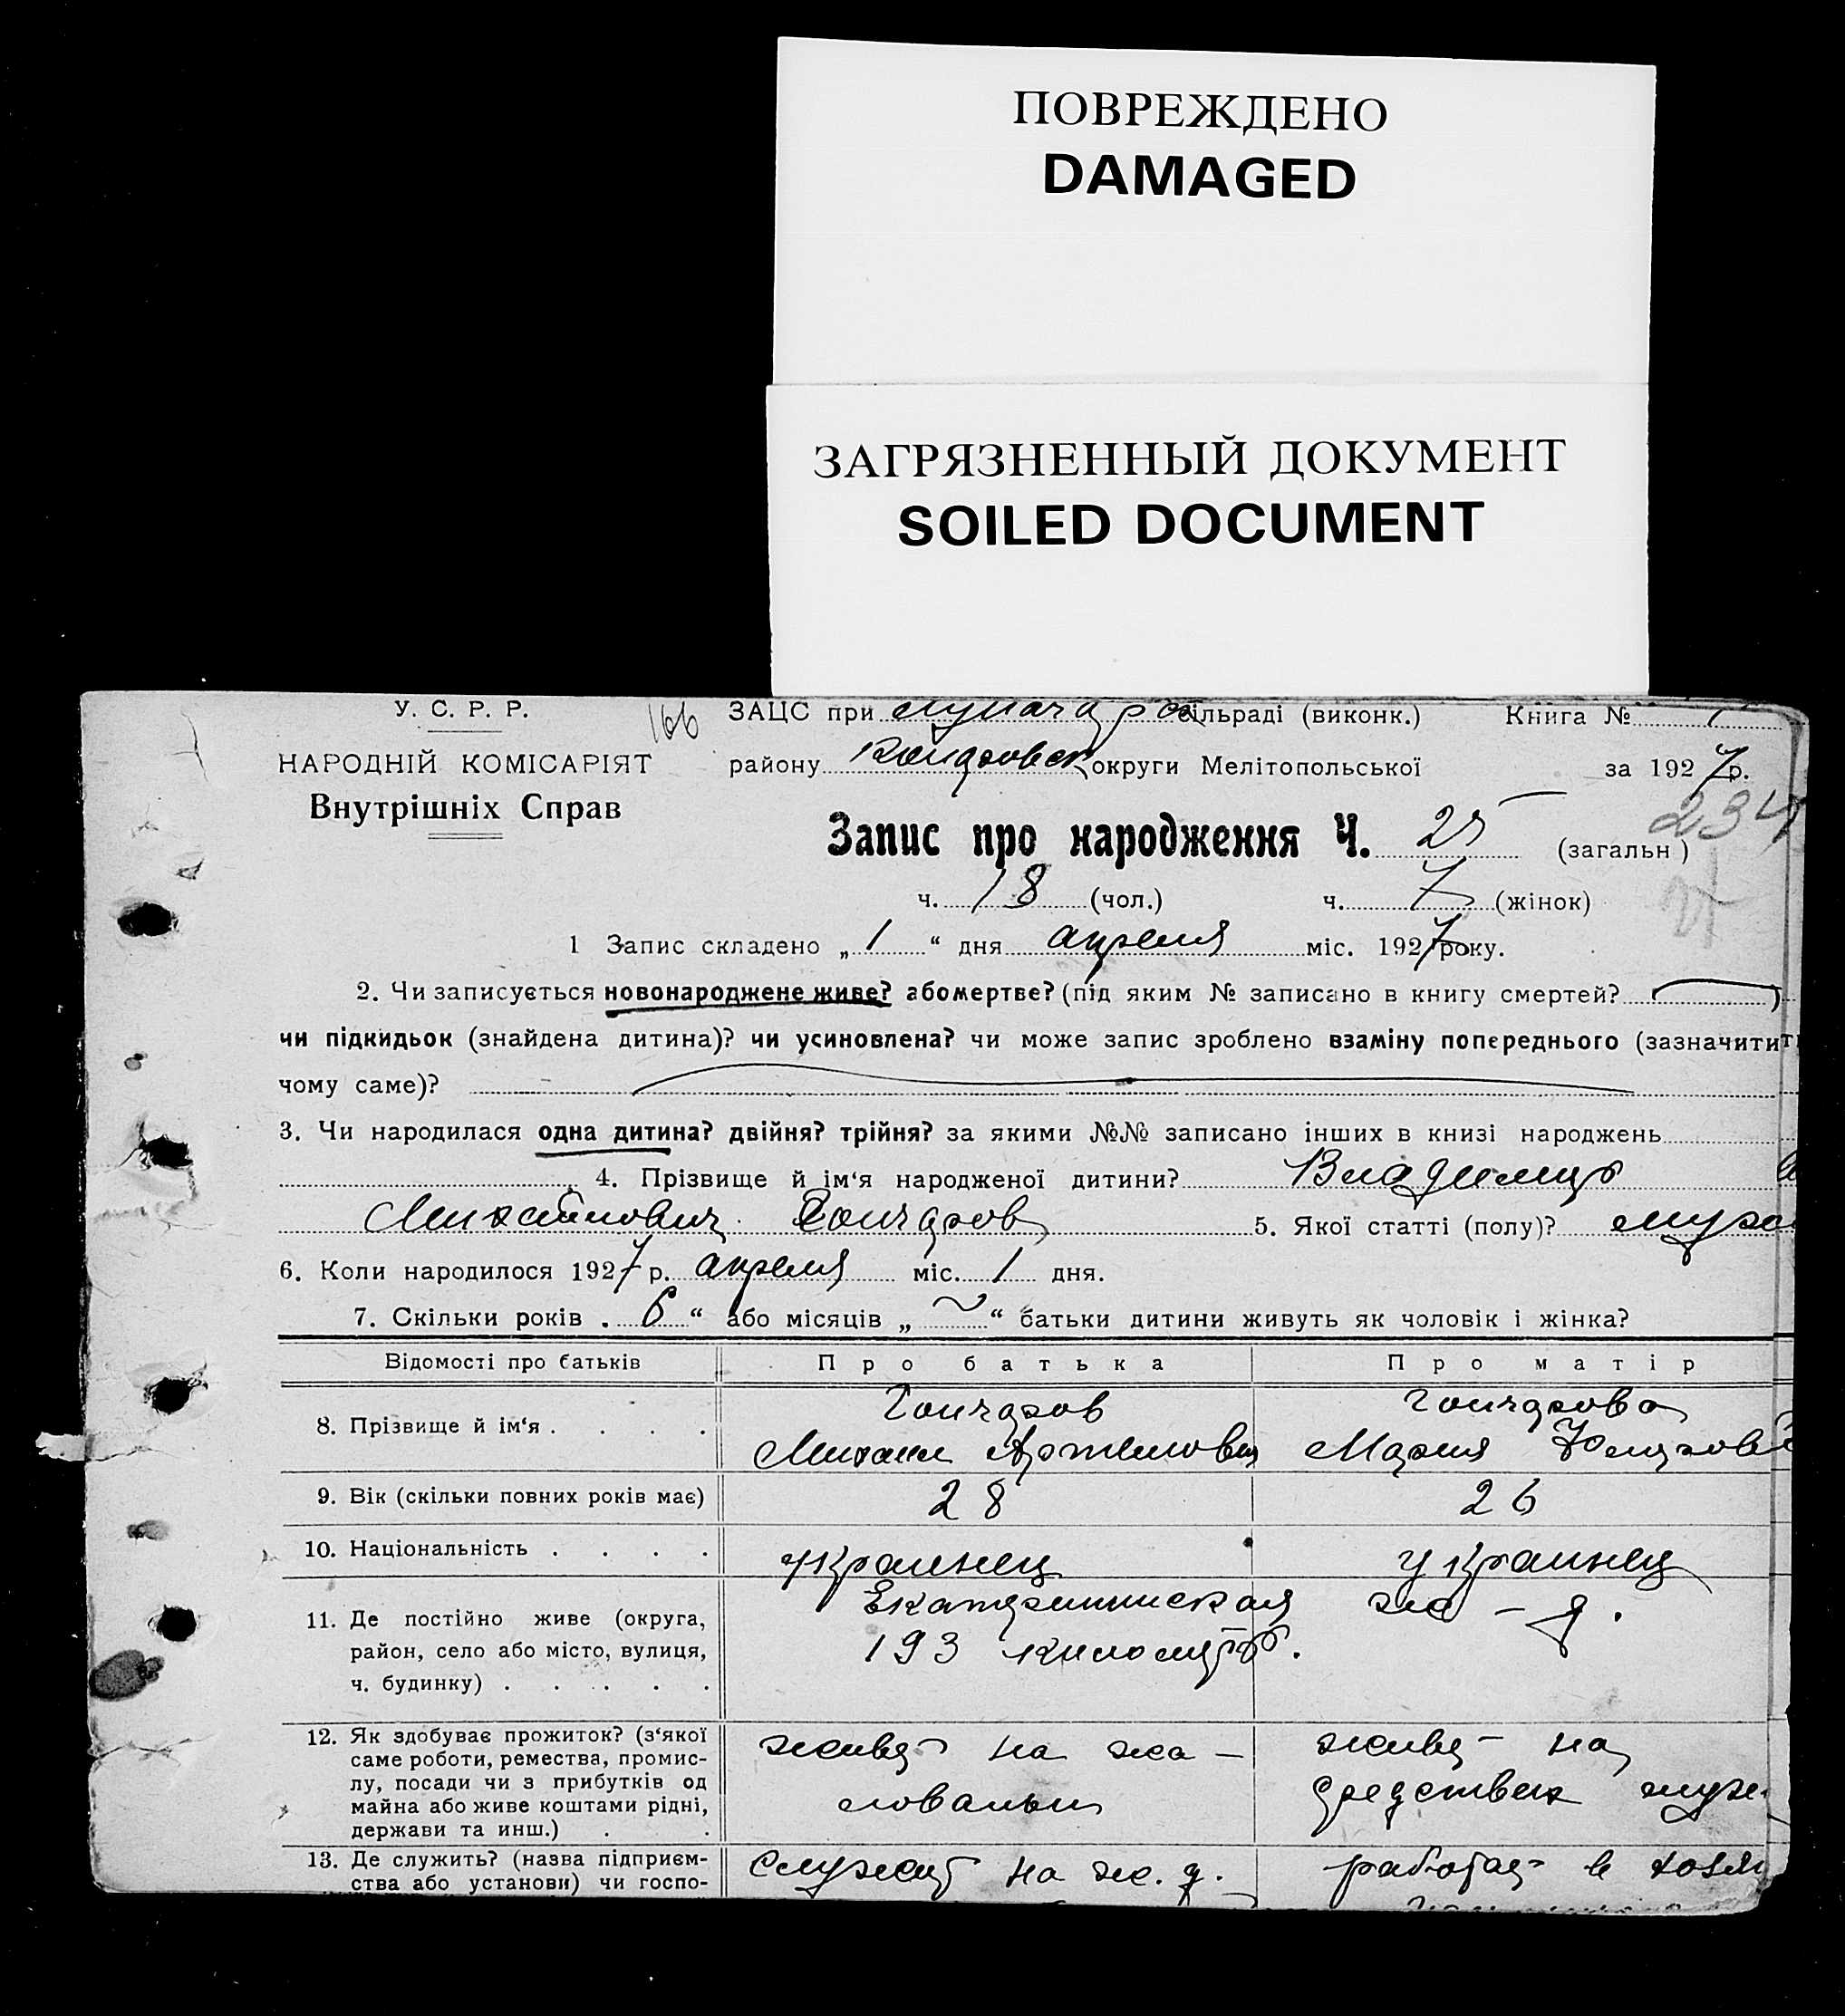 ПОВРЕЖДЕНО
DAMAGED
ЗАГРЯЗНЕННЫЙ ДОКУМЕНТ
SOILED DOCUMENT
У. С. Р. Р.
166
ЗАЦС при сільраді (виконк.) Книга № 1
НАРОДНІЙ КОМІСАРІЯТ
району округи Мелітопольської за 1927 р.
Внутрішніх Справ
234
Запис про народження Ч. 25 (загальн)
ч. 18 (чол.) ч. 7 (жінок)
1 Запис складено „ 1 “ дня апреля міс. 1927 року.
2. Чи записується новонароджене живе? або мертве? (під яким № записано в книгу смертей?
чи підкидьок (знайдена дитина)? чи усиновлена? чи може запис зроблено взаміну попереднього (зазначити
чому саме)?
3. Чи народилася одна дитина? двійня? трійня? за якими №№ записано інших в книзі народжень
4. Прізвище й ім‘я народженої дитини? Владимир
Михайлович Гончаров 5. Якої статті (полу)?
6. Коли народилося 1927 р. апреля міс. 1 дня.
7. Скільки років . 6 “ або місяців „ “ батьки дитини живуть як чоловік і жінка?
Відомості про батьків Про батька Про матір
8. Прізвище й ім‘я . . . . .
Гончаров
Михаил Артемович
Гончарова
Мария
9. Вік (скільки повних років має) 28 26
10. Національність . . . . украинец украинец
11. Де постійно живе (округа,
район, село або місто, вулиця,
ч. будинку) . . . . .
Екатерининская
193 километр.
ж - д.
12. Як здобуває прожиток? (з‘якої
саме роботи, ремества, промис-
лу, посади чи з прибутків од
майна або живе коштами рідні,
держави та инш.) . .
живет на жа-
лованьи
живет на
средствах
13. Де служить? (назва підприєм-
ства або установи) чи госпо-
служит на ж. д.
работает в